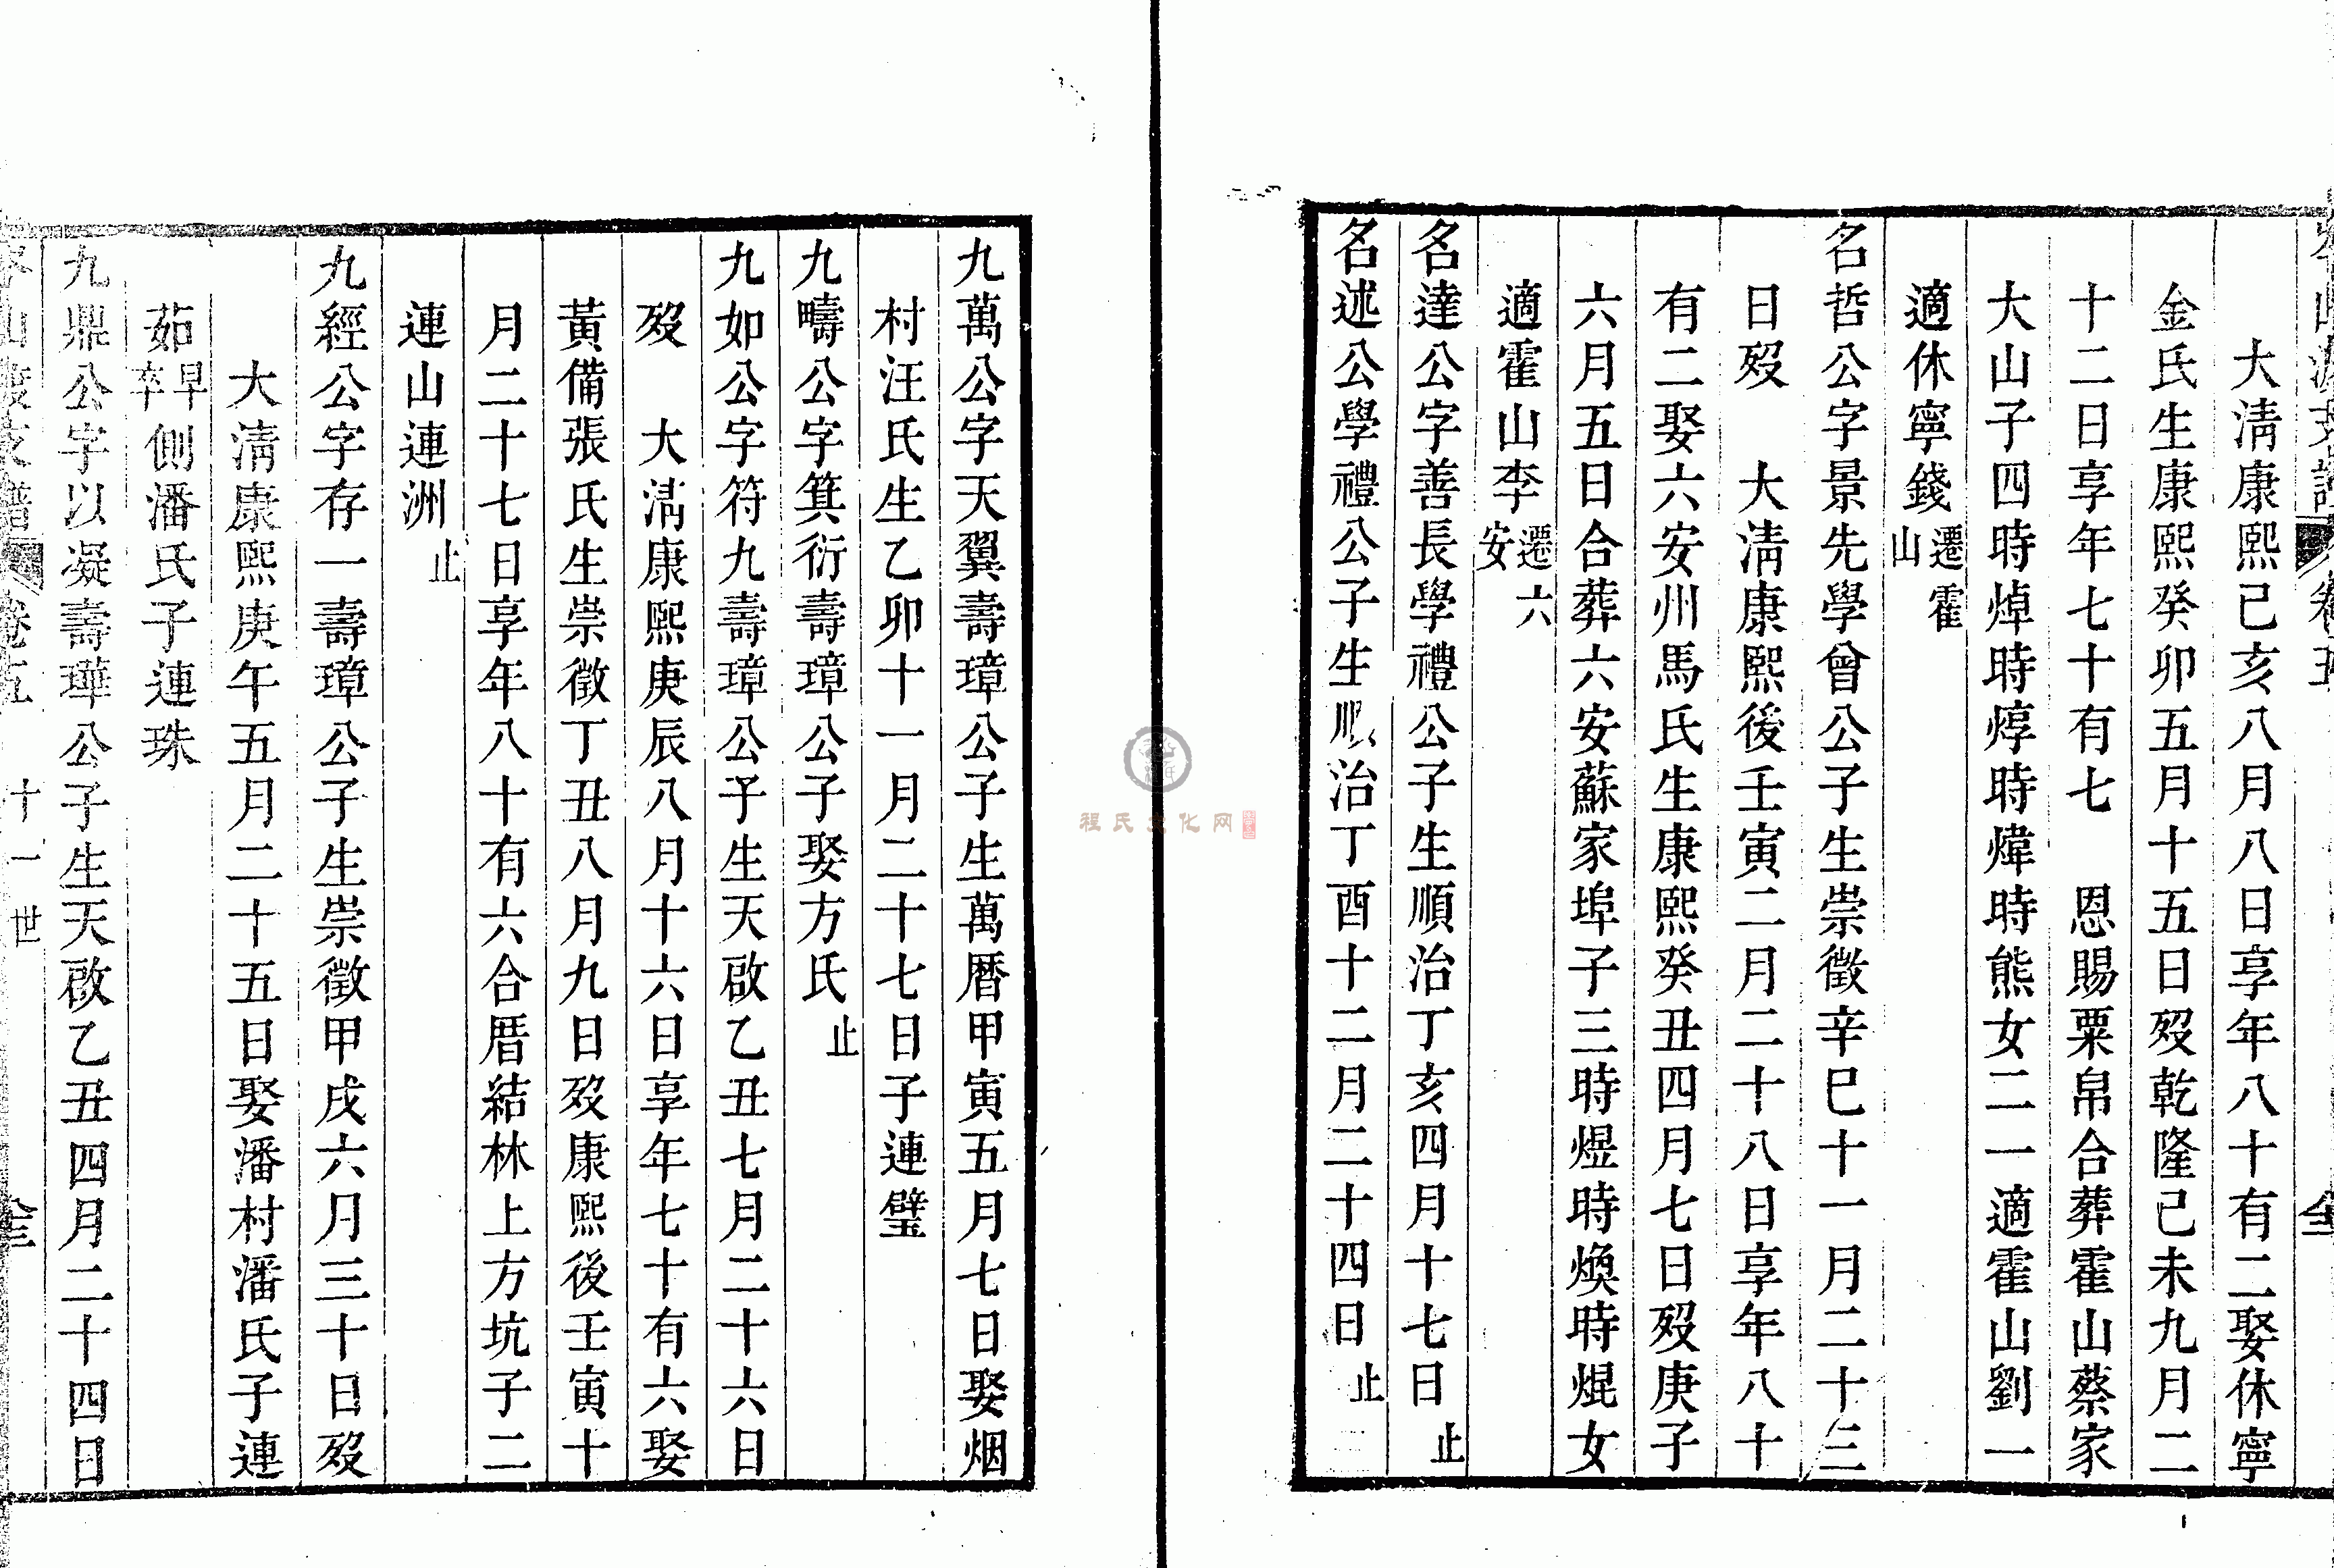 大淸康熙己亥八月八日享年八十有二娶休寧
金氏生康熙癸卯五月十五日歿乾隆己未九月二
十二日享年七十有七　恩賜粟帛合葬霍山蔡家
大山子四時焯時焞時煒時熊女二一適霍山劉一
適休寧錢遷霍山
名哲公字景先學曾公子生崇徵辛巳十一月二十三
日歿　大淸康熙後壬寅二月二十八日享年八十
有二娶六安州馬氏生康熙癸丑四月七日歿庚子
六月五日合葬六安蘇家埠子三時煜時煥時焜女
適霍山李遷六安
名達公字善長學禮公子生順治丁亥四月十七日止
名述公學禮公子生順治丁酉十二月二十四日止
九萬公字天翼壽璋公子生萬曆甲寅五月七日娶烟
村汪氏生乙卯十一月二十七日子連璧
九疇公字箕衍壽璋公子娶方氏止
九如公字符九壽璋公子生天啟乙丑七月二十六日
歿　大淸康熙庚辰八月十六日享年七十有六娶
黃備張氏生崇徵丁丑八月九日歿康熙後壬寅十
月二十七日享年八十有六合厝結林上方坑子二
連山連洲止
九經公字存一壽璋公子生崇徵甲戌六月三十日歿
大淸康熙庚午五月二十五日娶潘村潘氏子連
茹早卒側潘氏子連珠
九鼎公字以凝壽瑋公子生天啟乙丑四月二十四日
卷五　十一世
程氏文化网